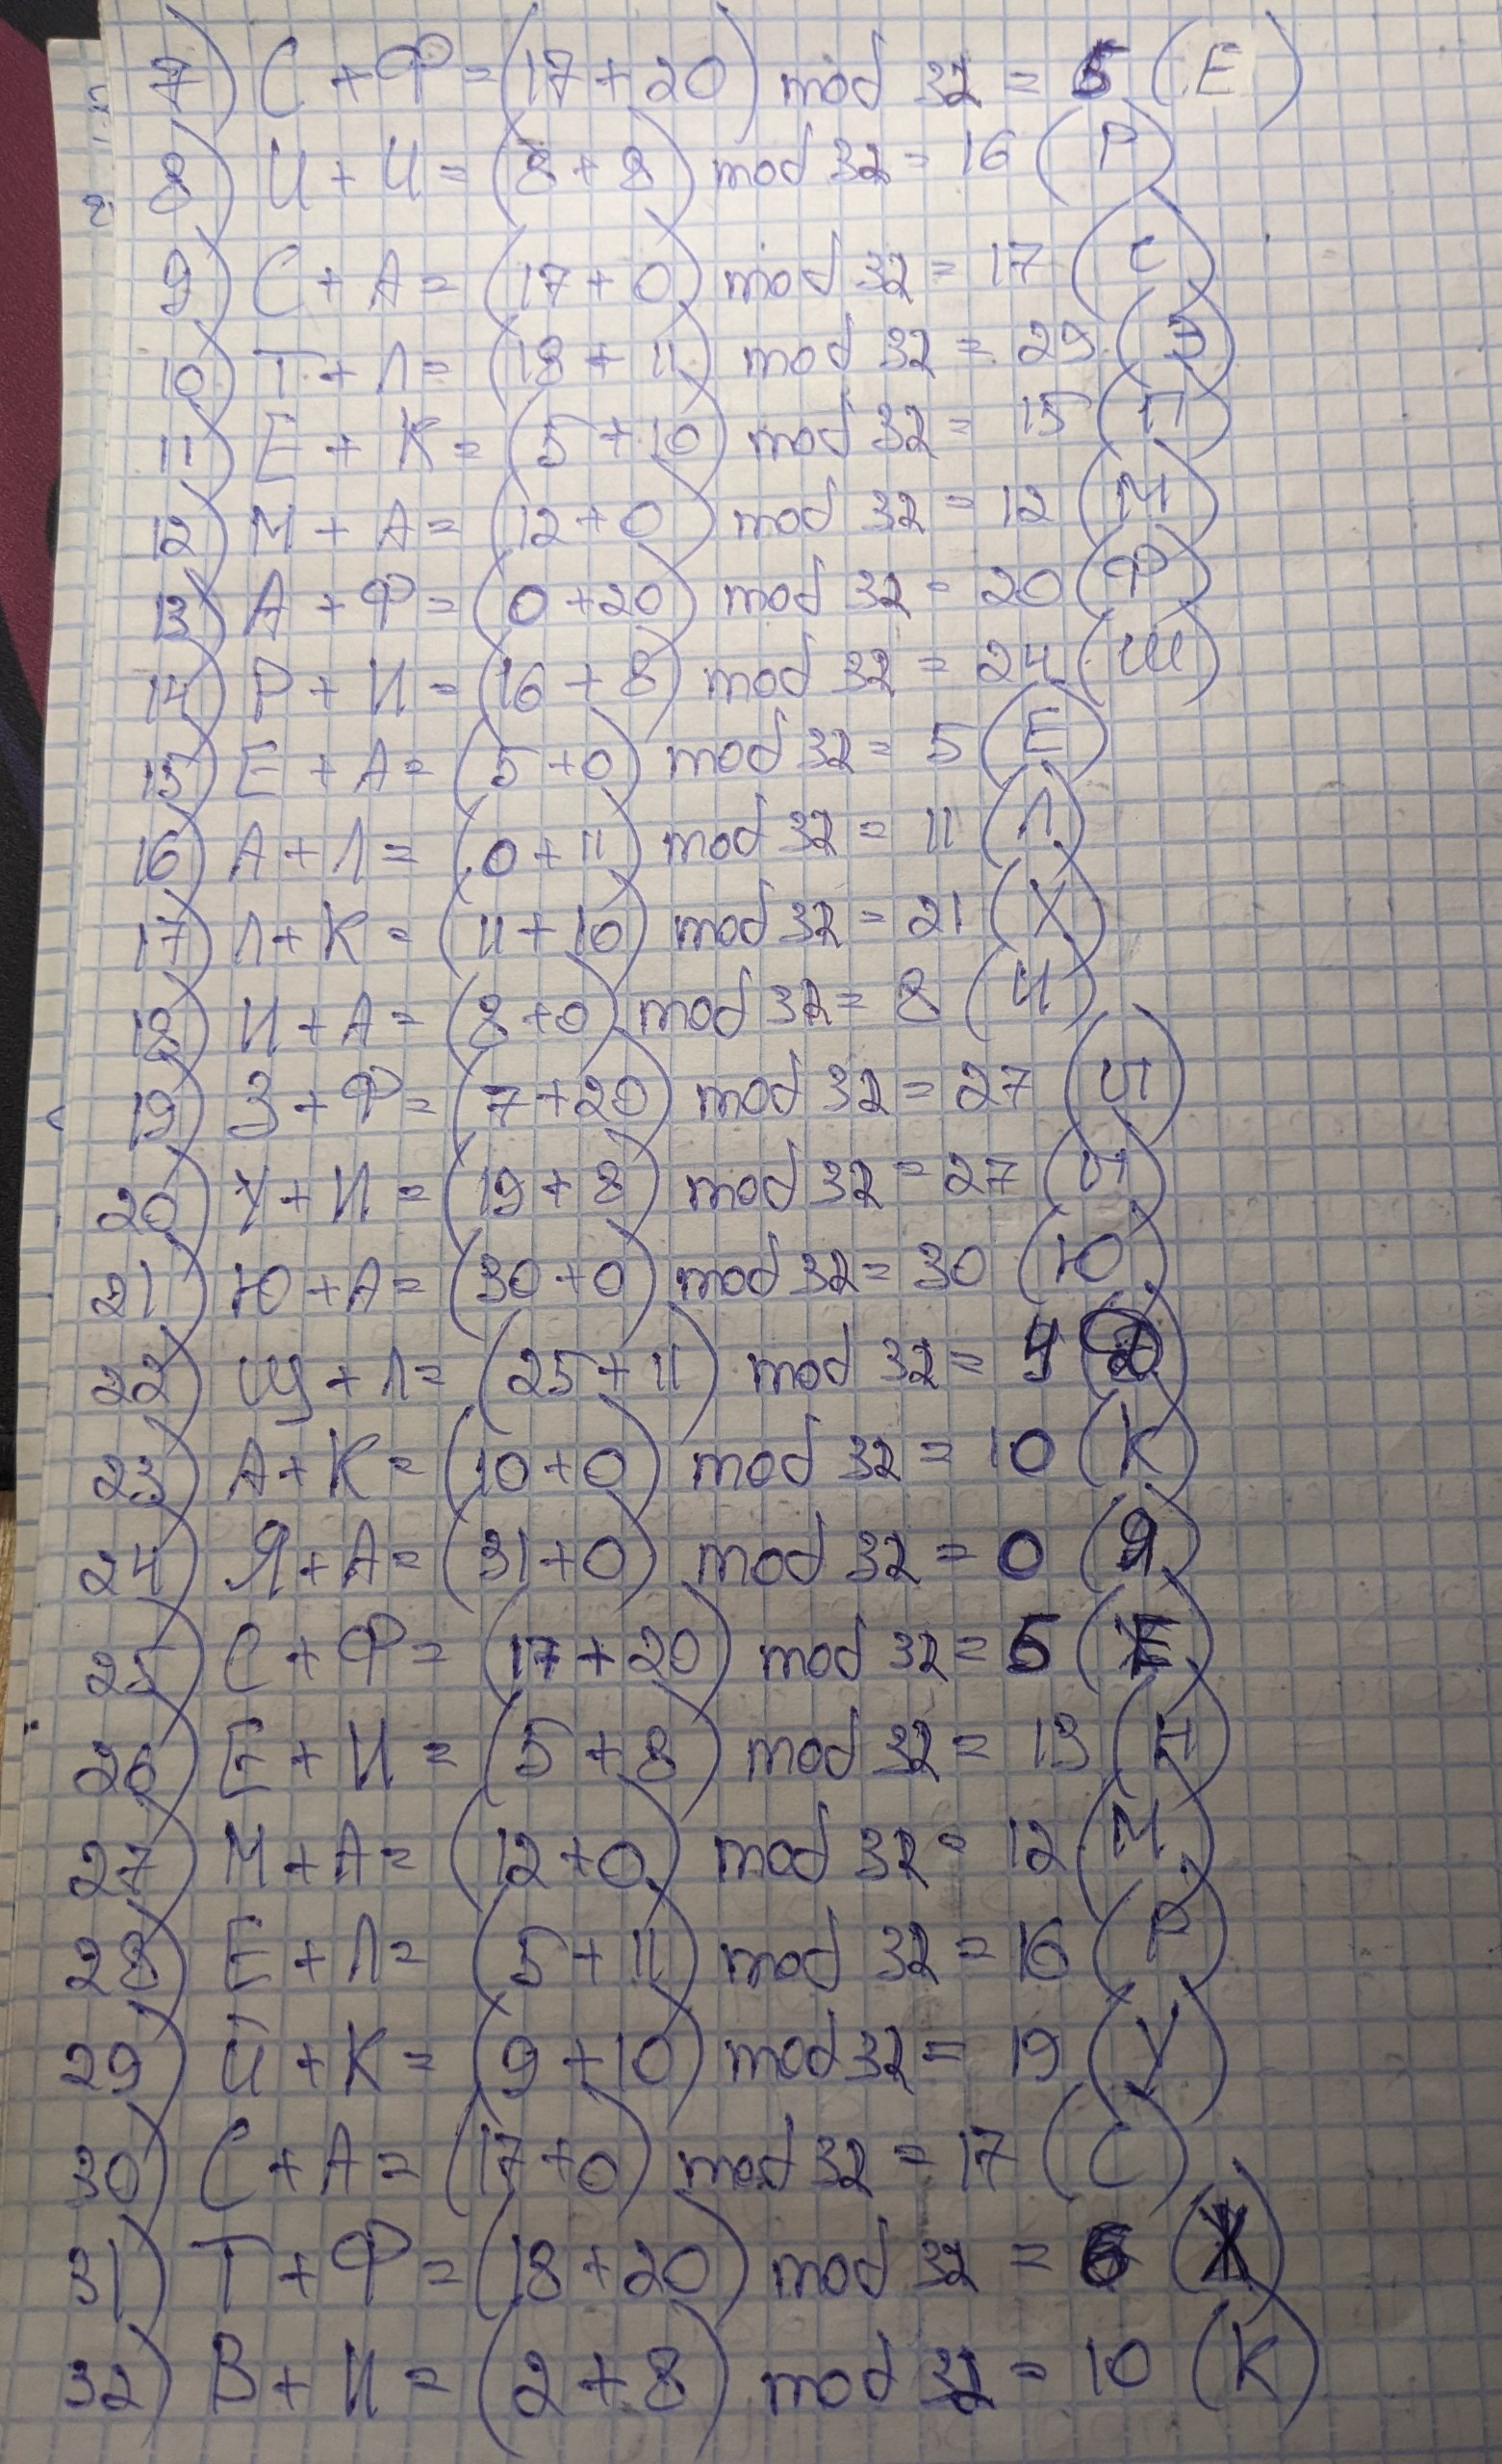 7) С + Ф = (17 + 20) mod 32 = 5 (Е)
8) И + И = (8 + 8) mod 32 = 16 (Р)
9) С + А = (17 + 0) mod 32 = 17 (С)
10) Т + Л = (18 + 11) mod 32 = 29 (Э)
11) Е + К = (5 + 10) mod 32 = 15 (П)
12) М + А = (12 + 0) mod 32 = 12 (М)
13) А + Ф = (0 + 20) mod 32 = 20 (Ф)
14) Р + И = (16 + 8) mod 32 = 24 (Ш)
15) Е + А = (5 + 0) mod 32 = 5 (Е)
16) А + Л = (0 + 11) mod 32 = 11 (Л)
17) Л + К = (11 + 10) mod 32 = 21 (Х)
18) И + А = (8 + 0) mod 32 = 8 (И)
19) З + Ф = (7 + 20) mod 32 = 27 (Ы)
20) У + И = (19 + 8) mod 32 = 27 (Ы)
21) Ю + А = (30 + 0) mod 32 = 30 (Ю)
22) Щ + Л = (25 + 11) mod 32 = 4 (Д)
23) А + К = (10 + 0) mod 32 = 10 (К)
24) Я + А = (31 + 0) mod 32 = 0 (Я)
25) С + Ф = (17 + 20) mod 32 = 5 (Е)
26) Е + И = (5 + 8) mod 32 = 13 (Н)
27) М + А = (12 + 0) mod 32 = 12 (М)
28) Е + Л = (5 + 11) mod 32 = 16 (Р)
29) Й + К = (9 + 10) mod 32 = 19 (У)
30) С + А = (17 + 0) mod 32 = 17 (С)
31) Т + Ф = (18 + 20) mod 32 = 6 (Ж)
32) В + И = (2 + 8) mod 32 = 10 (К)